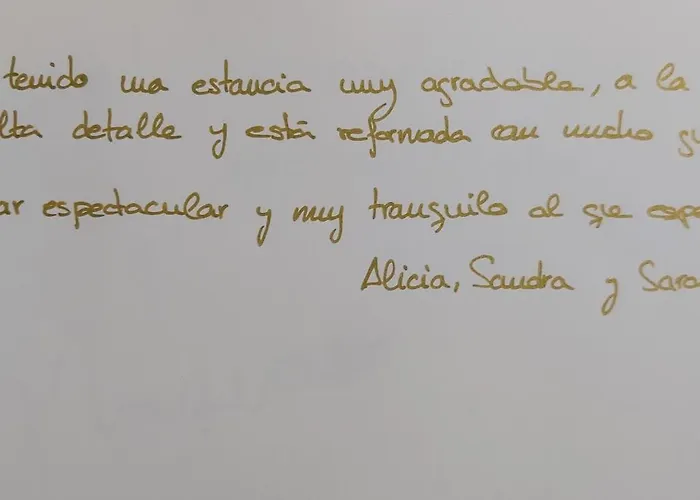 tenido una estancia muy agradable, a la
lta detalle y está reformada con mucho
ar espectacular y muy tranquilo al que
Alicia, Sandra y Sara